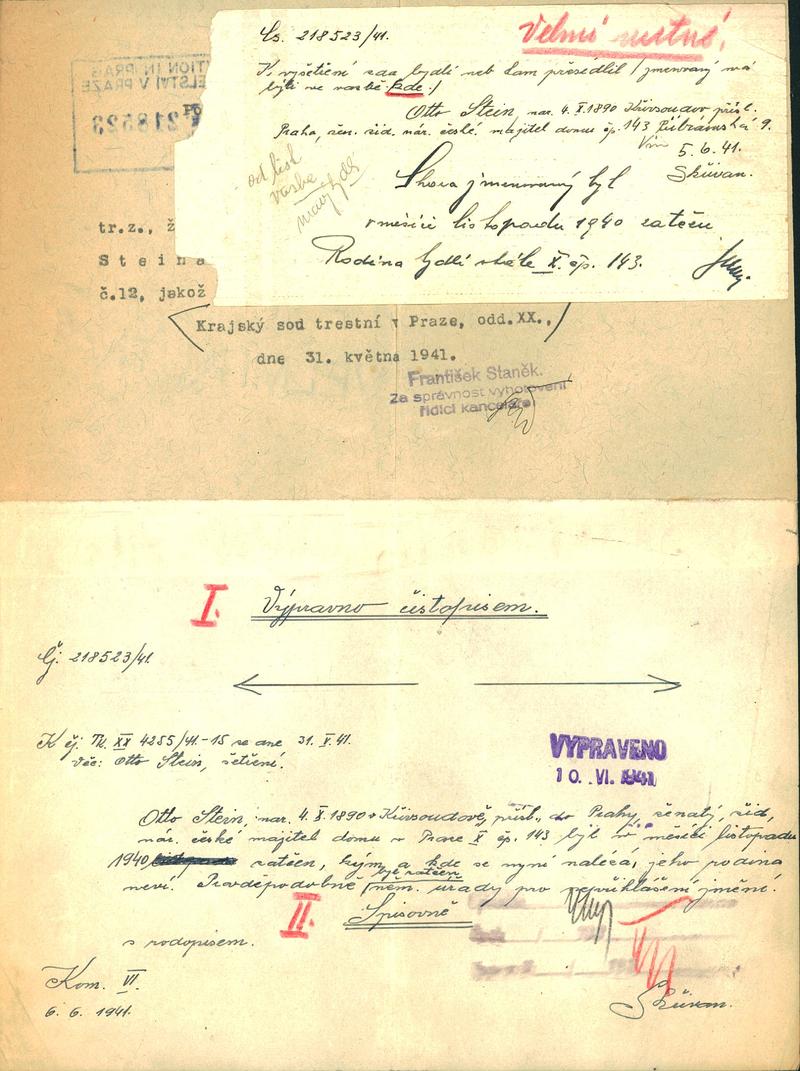 Čs. 218523/41.
Velmi nutné!
K vyšetření zda bydlí neb kam přesídlil /jmenovaný má
býti ve vazbě kde./
Otto Stein, nar. 4. X. 1890 Křivsoudov přísl.
Praha, žen. žid. nár. české. majitel domu čp. 143 Příbramská 9.
5. 6. 41.
Skřivan.
od kdy
vazba
kde
Shora jmenovaný byl
v měsíci listopadu 1940 zatčen
Rodina bydlí stále X. čp. 143.
TION IN PRAG
ELSTVÍ V PRAZE
218523
tr.z., ž
Steina
č.12, jakož
Krajský soud trestní v Praze, odd.XX.,
dne 31. května 1941.
František Staněk.
Za správnost vyhotovení
řídící kanceláře
I. Výpravno čistopisem.
Čj. 218523/41
K čj. Tk XX 4255/41-15 ze dne 31. V. 41.
Věc: Otto Stein, šetření.
VYPRAVENO
10. VI. 1941
Otto Stein, nar. 4. X. 1890 v Křivsoudově, přísl. do Prahy, ženatý, žid,
nár. české majitel domu v Praze X čp. 143 byl v měsíci listopadu
1940 zatčen, kým a kde se nyní nalézá, jeho rodina
neví. Pravděpodobně byl zatčen něm. úřady pro nepřihlášení jmění.
II. Spisovně
s rodopisem.
Kom. VI.
6. 6. 1941.
Skřivan.